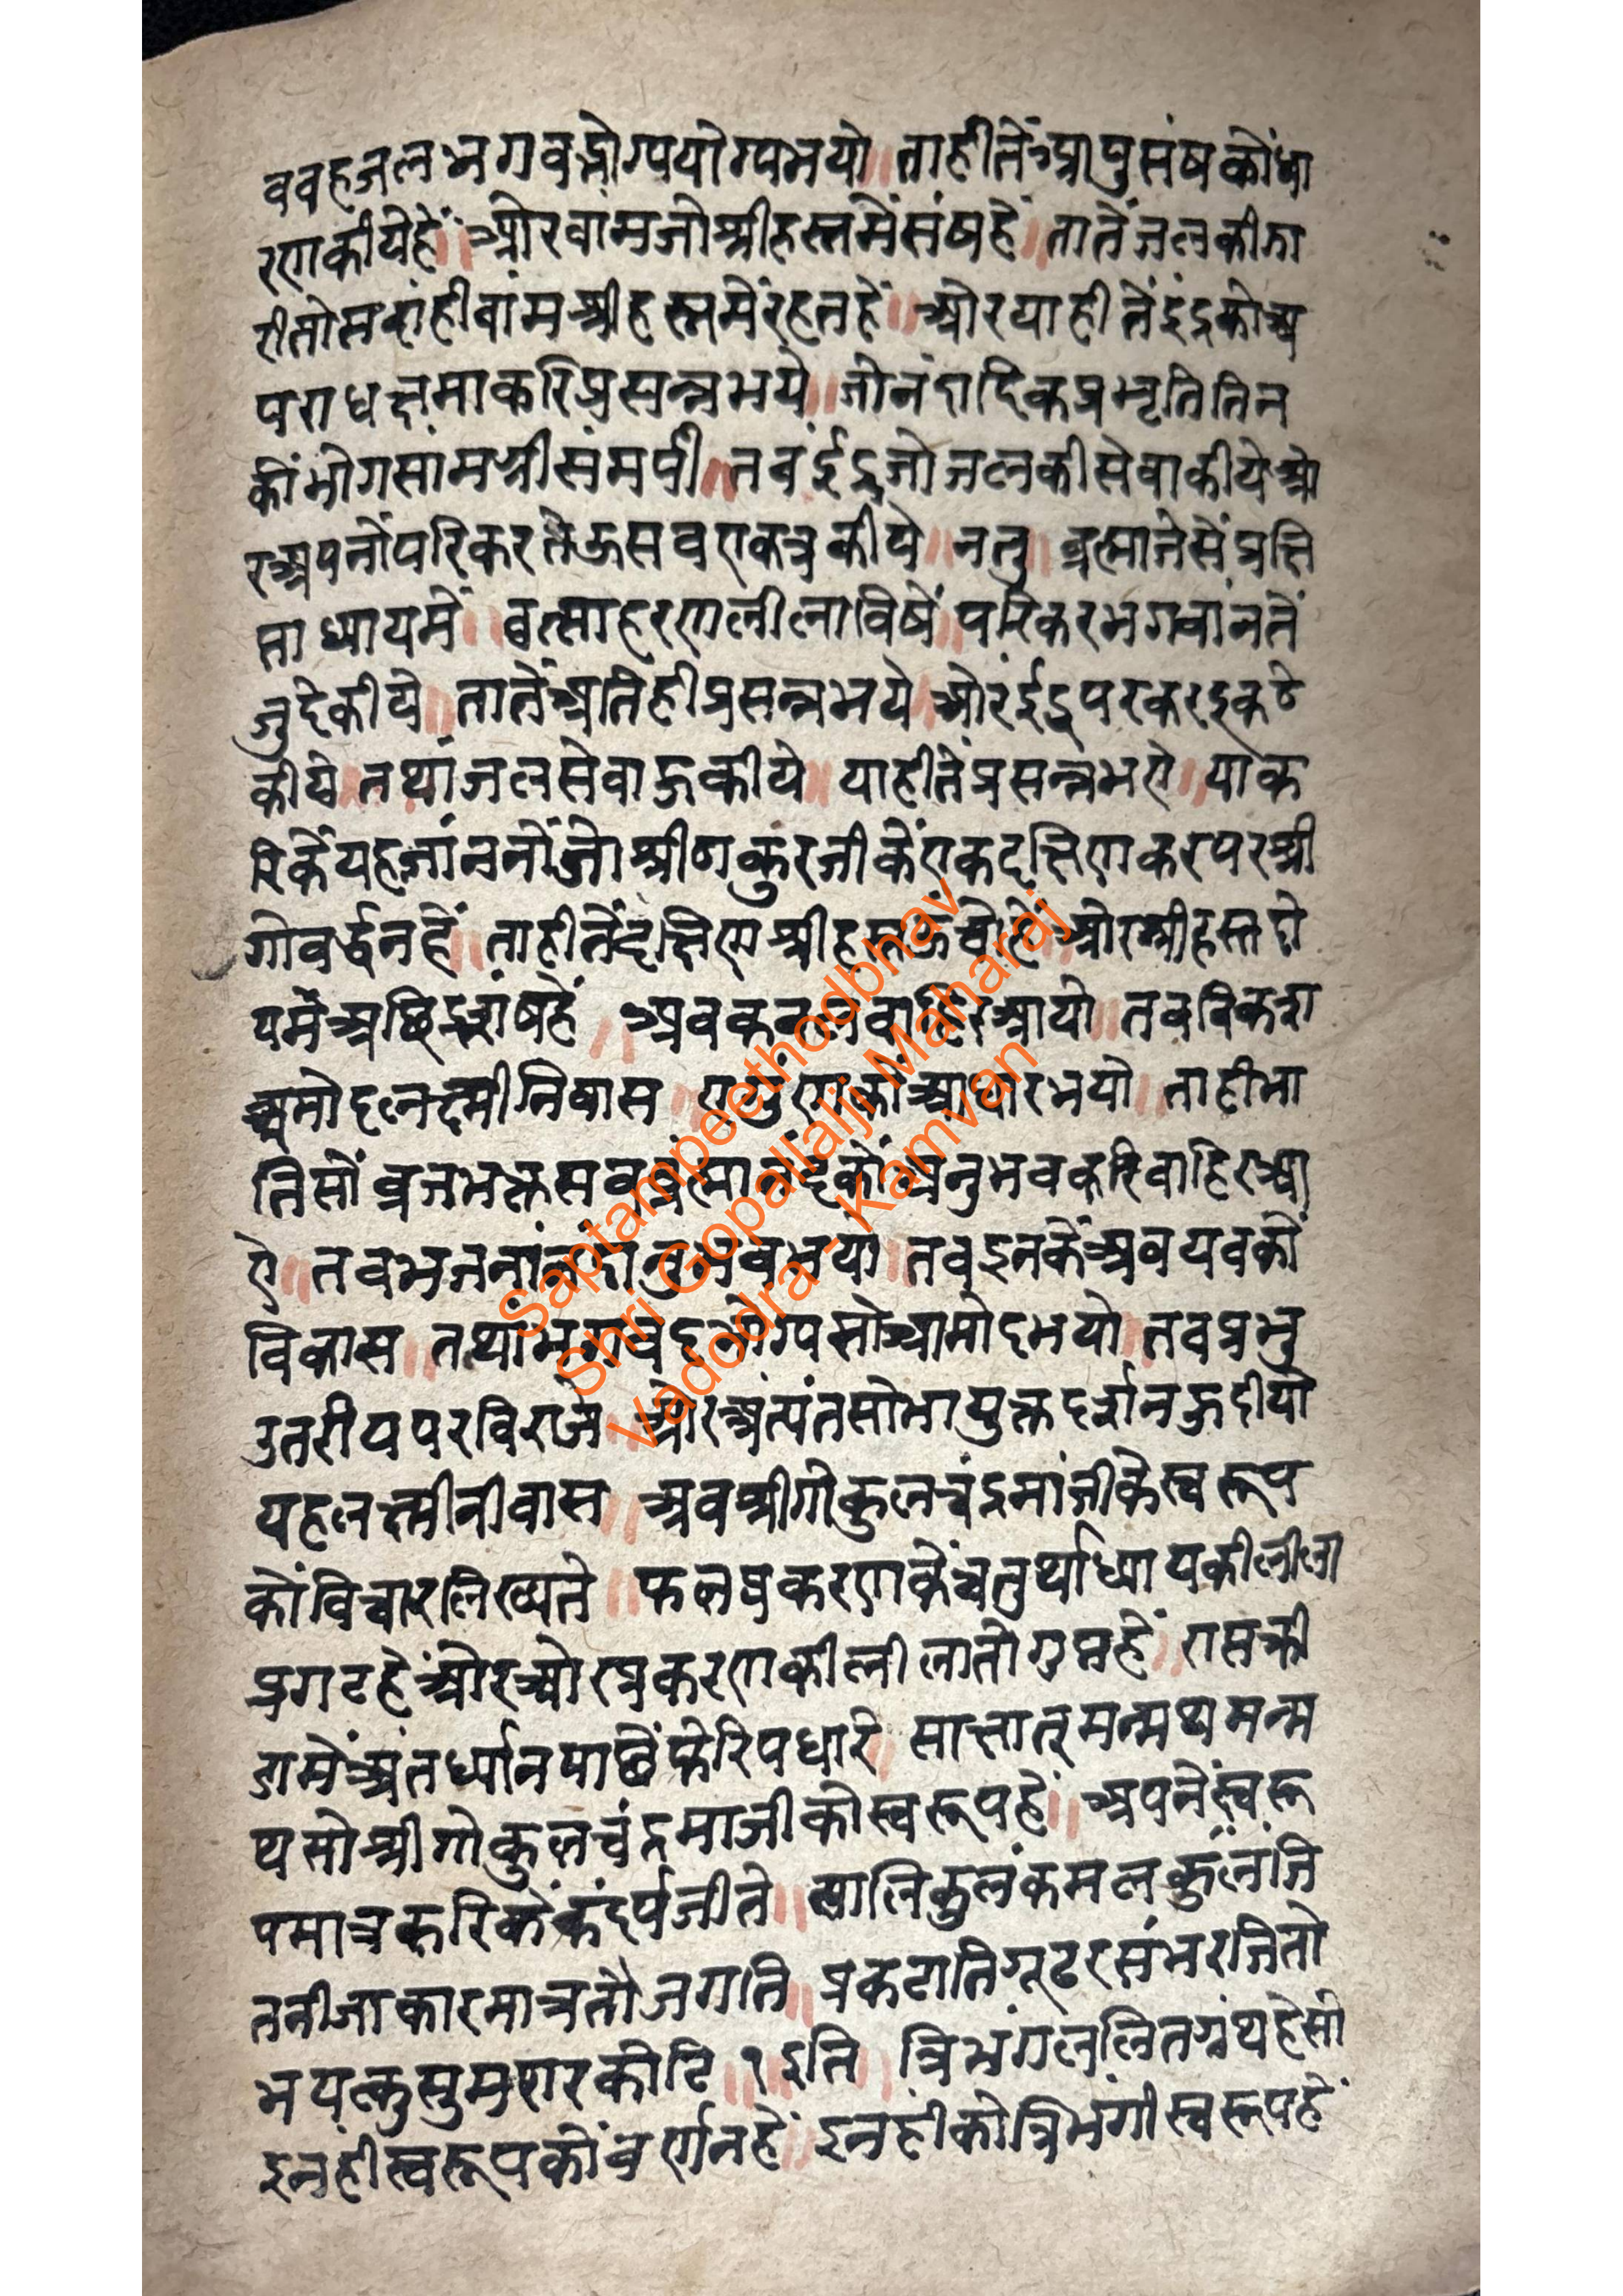 ववहजलभगवद्भोग्ययोग्यभयो ॥ ताहीतेंआपुसंषकोंधा
रणकीयेहें ॥ ओरवामजोश्रीहस्तमेंसंषहें ॥ तातेंजलकीझा
रीतोसदांहीवांमश्रीहस्तमेंरहतहें ॥ ओरयाहीतेंइंद्रकोअ
पराधक्षमाकरिप्रसन्नभये ॥ जोनंदादिकप्रभृतितिन
कोंभोगसांमग्रीसंमर्पी ॥ तबईंद्रजोजलकीसेवाकीयेओ
रअपनोंपरिकरतेऊसबएकत्रकीये ॥ ननु ॥ ब्रह्मानेसेंप्रक्षि
प्ताध्यायमें ॥ वत्साहरणलीलाविषें ॥ परिकरभगवांनतें
जुदेकीये ॥ तातेंअतिहीप्रसन्नभये ॥ ओरईंद्रपरकरइकठे
कीये ॥ तथांजलसेवाऊकीये ॥ याहीतेंप्रसन्नभए ॥ याक
रिकेंयहजांननोंजोश्रीठाकुरजीकेंएकदक्षिणकरपरश्री
गोवर्द्धनहें ॥ ताहीतेंदक्षिणश्रीहस्तऊंचोहें ॥ ओरश्रीहस्तदो
यमेंअछिद्रसंषहें ॥ अब बाहिरआयो ॥ तबविकसा
अमोदलक्ष्मीनिवास ॥ एगुंणकोंआधारभयो ॥ ताहीभा
तिसोंव्रजभक्तसबब्रह्मानंदकोंअनुभवकरिबाहिरआ
ऐ ॥ तबभजनांनंदानुभवभयो ॥ तबइनकेंअवयवकों
विकास ॥ तथांभगवदभोग्यसोआमोदभयो ॥ तबप्रभु
उतरीयपरविराजे ॥ ओरअत्यंतसोभायुक्तदर्शनऊदीयो
यहलक्ष्मीनीवास ॥ अबश्रीगोकुलचंद्रमांजीकेस्वरूप
कोंविचारलिख्यते ॥ फलप्रकरणकेंचतुर्थाध्यायकीलीला
प्रगटहेंओरओरप्रकरणकीलीलातोगुप्तहें ॥ रासक्री
डामेंअंतर्ध्यानपाछेंफेरिपधारे ॥ साक्षातमन्मथमन्म
थसोश्रीगोकुलचंद्रमाजीकोस्वरूपहें ॥ अपनेंस्वरू
पमात्रकरिकेंकंदर्पजीते ॥ सालिकुलंकमलकुलंजि
तनीजाकारमात्रतोजगति ॥ प्रकटातिगूढरसभरजितो
भयत्कुसुमशरकोटि ॥१॥ इति ॥ त्रिभंगललितग्रंथहेसो
इनहीस्वरूपकोंवर्णनहें ॥ इनहींकोत्रिभंगीस्वरूपहें
Saptampeethodbhav
Shri Gopallalji Maharaj
Vadodra - Kamvan